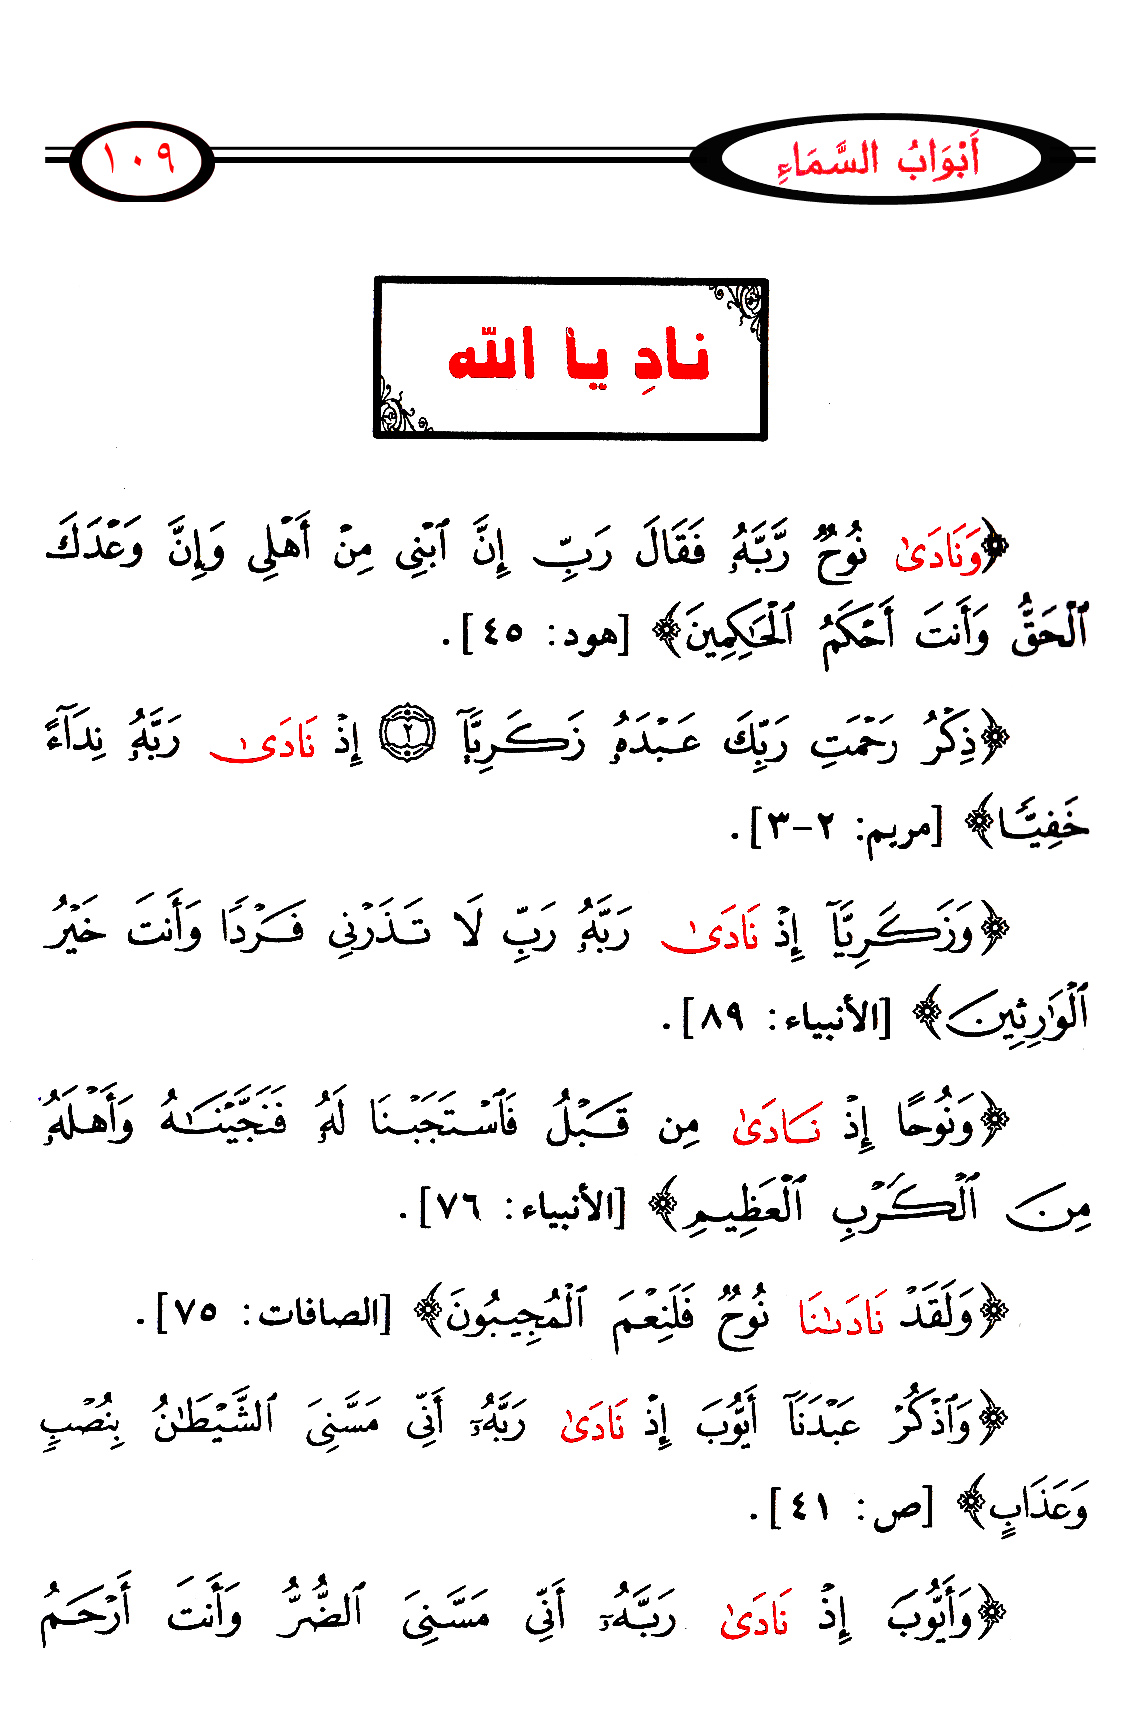 أَبْوَابُ السَّمَاءِ
١٠٩
نادِ يا الله
﴿وَنَادَىٰ نُوحٌ رَّبَّهُۥ فَقَالَ رَبِّ إِنَّ ٱبْنِى مِنْ أَهْلِى وَإِنَّ وَعْدَكَ
ٱلْحَقُّ وَأَنتَ أَحْكَمُ ٱلْحَٰكِمِينَ﴾ [هود: ٤٥].
﴿ذِكْرُ رَحْمَتِ رَبِّكَ عَبْدَهُۥ زَكَرِيَّآ ٢ إِذْ نَادَىٰ رَبَّهُۥ نِدَآءً
خَفِيًّا﴾ [مريم: ٢-٣].
﴿وَزَكَرِيَّآ إِذْ نَادَىٰ رَبَّهُۥ رَبِّ لَا تَذَرْنِى فَرْدًا وَأَنتَ خَيْرُ
ٱلْوَٰرِثِينَ﴾ [الأنبياء: ٨٩].
﴿وَنُوحًا إِذْ نَادَىٰ مِن قَبْلُ فَٱسْتَجَبْنَا لَهُۥ فَنَجَّيْنَٰهُ وَأَهْلَهُۥ
مِنَ ٱلْكَرْبِ ٱلْعَظِيمِ﴾ [الأنبياء: ٧٦].
﴿وَلَقَدْ نَادَىٰنَا نُوحٌ فَلَنِعْمَ ٱلْمُجِيبُونَ﴾ [الصافات: ٧٥].
﴿وَٱذْكُرْ عَبْدَنَآ أَيُّوبَ إِذْ نَادَىٰ رَبَّهُۥٓ أَنِّى مَسَّنِىَ ٱلشَّيْطَٰنُ بِنُصْبٍ
وَعَذَابٍ﴾ [ص: ٤١].
﴿وَأَيُّوبَ إِذْ نَادَىٰ رَبَّهُۥٓ أَنِّى مَسَّنِىَ ٱلضُّرُّ وَأَنتَ أَرْحَمُ